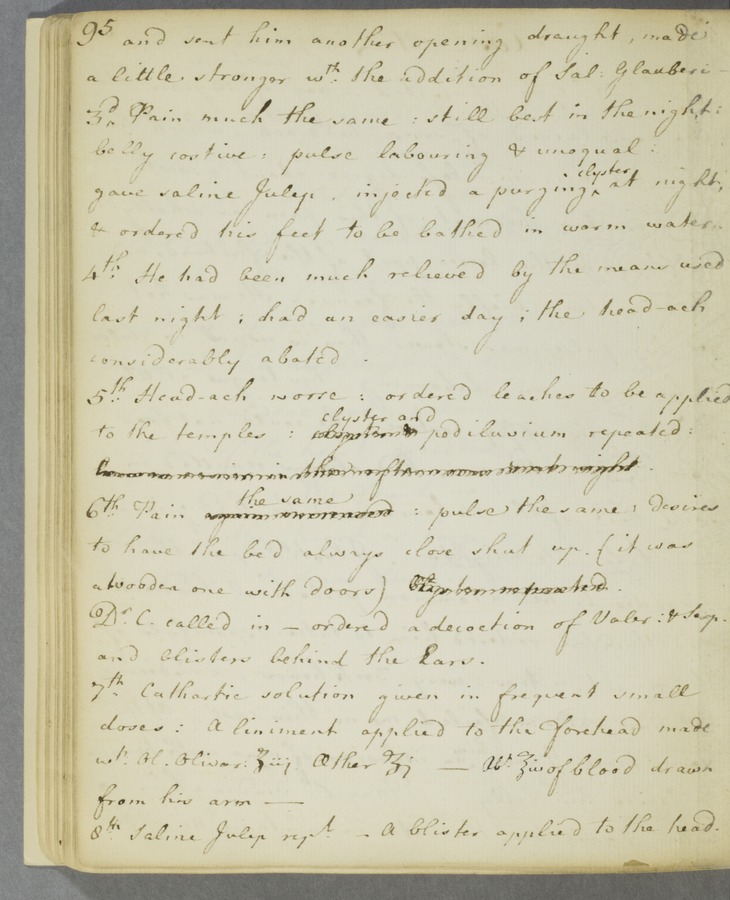 95 and sent him another opening draught, made
a little stronger wth. the addition of Sal: Glauberi -
3d. Pain much the same : still best in the night :
belly costive : pulse labouring & unequal :
gave saline Julep. injected a purging clyster at night,
& ordered his feet to be bathed in warm water.
4th. He had been much relieved by the means used
last night ; had an easier day ; the head-ach
considerably abated .
5th. Head-ach worse : ordered leaches to be applied
clyster and
to the temples : podiluvium repeated :
the afternoon
the same
6th. Pain : pulse the same : desires
to have the bed always close shut up. (it was
a wooden one with doors)
Dr. C. called in — ordered a decoction of Valer: & Serp.
and blisters behind the Ears.
7th. Cathartic solution given in frequent small
doses : A liniment applied to the forehead made
wt. Ol. Olivar: ℥iij Æther ℥j — of blood drawn
from his arm —
8th Saline Julep rept. — A blister applied to the head.